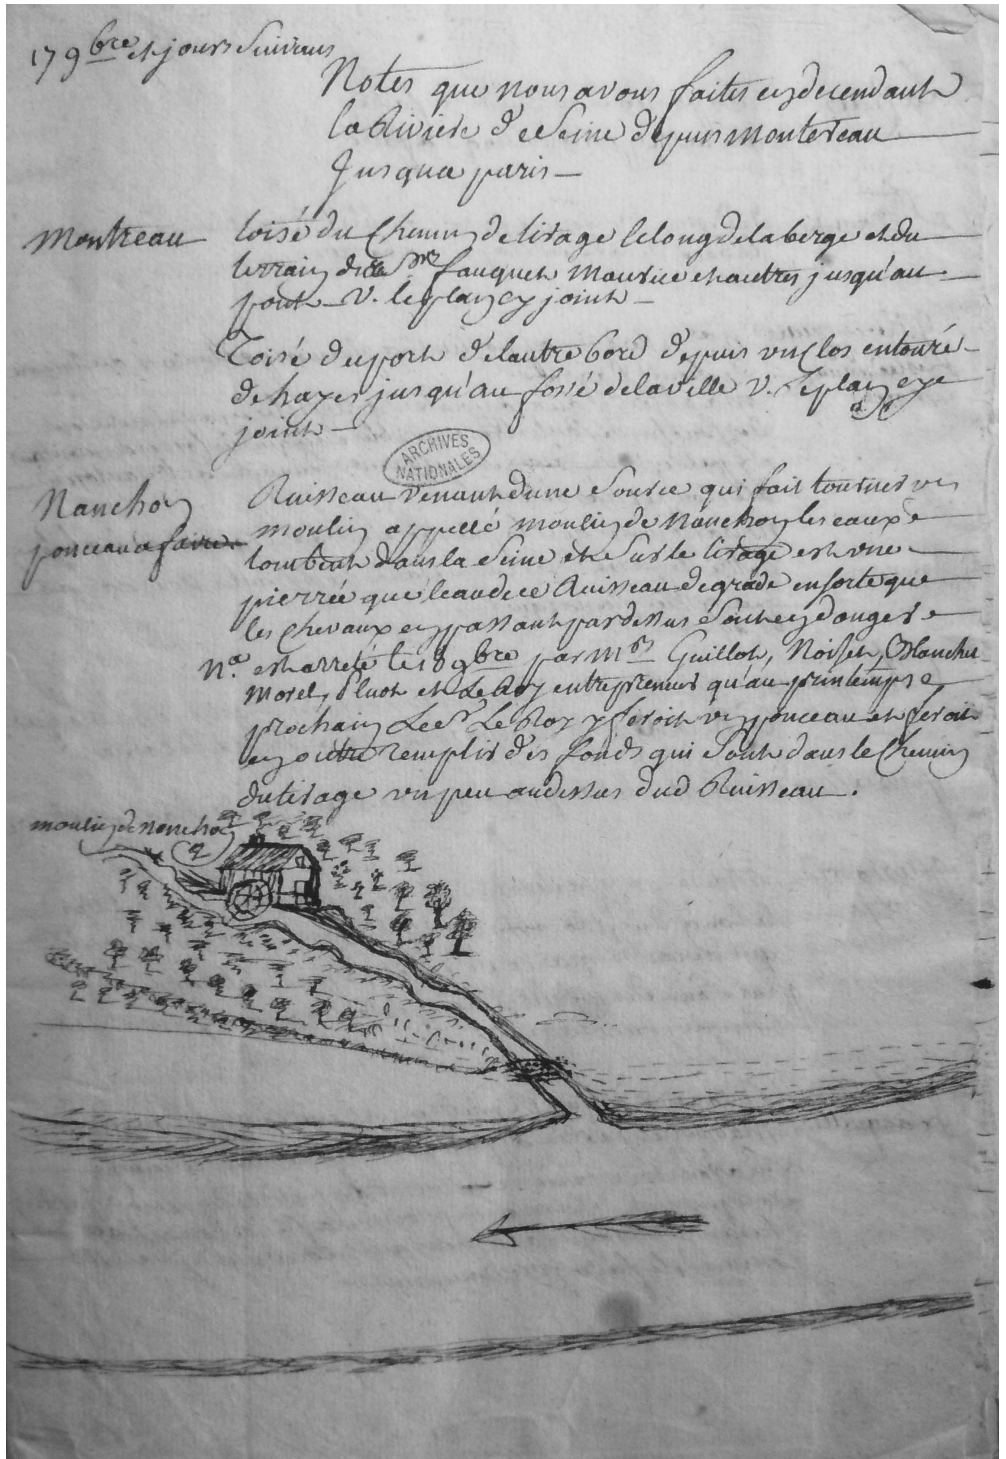 17 9bre et jours suivans
Notes que nous avons faites en decendant
la Riviere de Seine depuis montereau
Jusqua paris
montreau
toisé du Chemin de tirage le long de la berge et du
terrain des Srs fauquet maurice et autres jusqu'au
pont V. le plan cy joint
Toisé du port de lautre bord depuis un Clos entouré
de hayes jusqu'au fossé de la ville v. Le plan cy
joint
ARCHIVES
NATIONALES
Nanchon
ponceau a faire
Ruisseau venant dune Source qui fait tourner un
moulin appellé moulin de Nanchon les eaux
tombent dans la Seine et Sur le tirage est une
pierrée que leau de ce Ruisseau degrade en sorte que
les Chevaux en passant par dessus Sont en danger
Na. est arreté le 18 9bre par Mrs Guillot, Noiset, Blanchet
Morel, Pluot et Le Roy entrepreneurs qu'au printemps
prochain Le Sr Le Roy y feroit un ponceau et feroit
en outre remplir des fonds qui Sont dans le Chemin
du tirage un peu au dessus dud Ruisseau.
moulin de nanchon